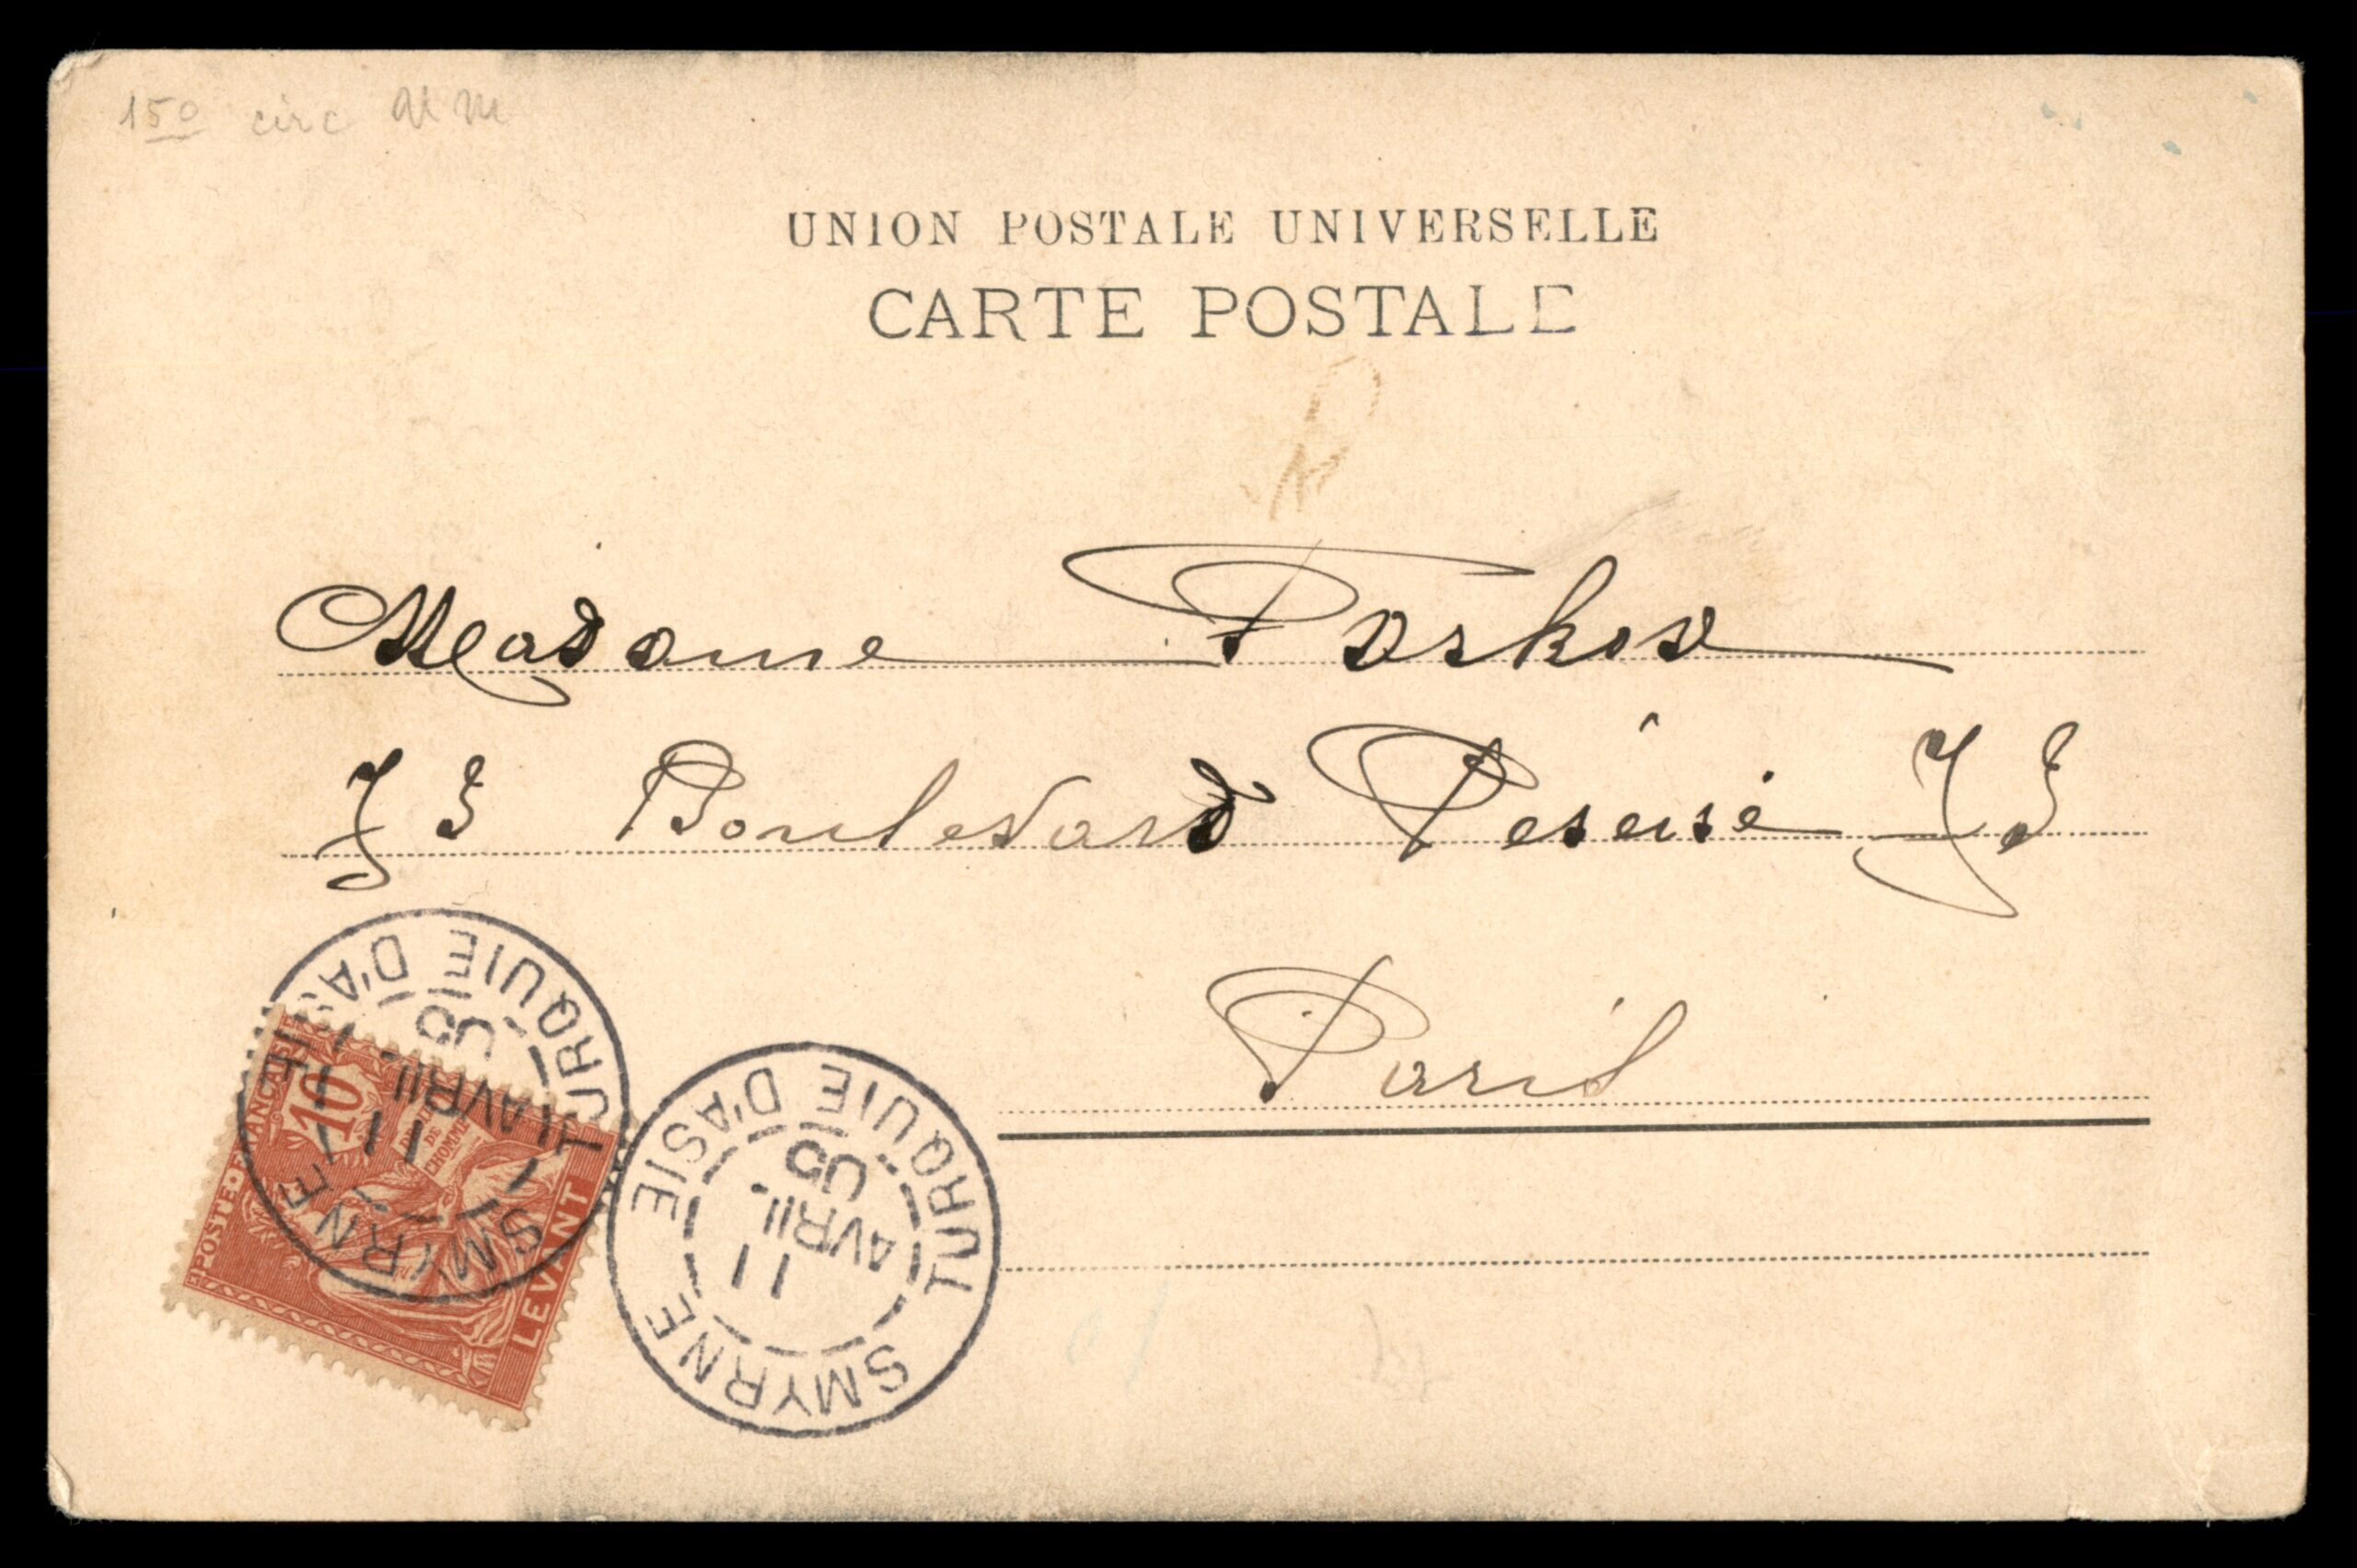 150 circ
UNION POSTALE UNIVERSELLE
CARTE POSTALE
Madame
Boulevard
Paris
TURQUIE D'ASIE
11
AVRIL
05
SMYRNE
POSTE FRANÇAISE
10
DROITS
DE
L'HOMME
LEVANT
TURQUIE D'ASIE
11
AVRIL
05
SMYRNE